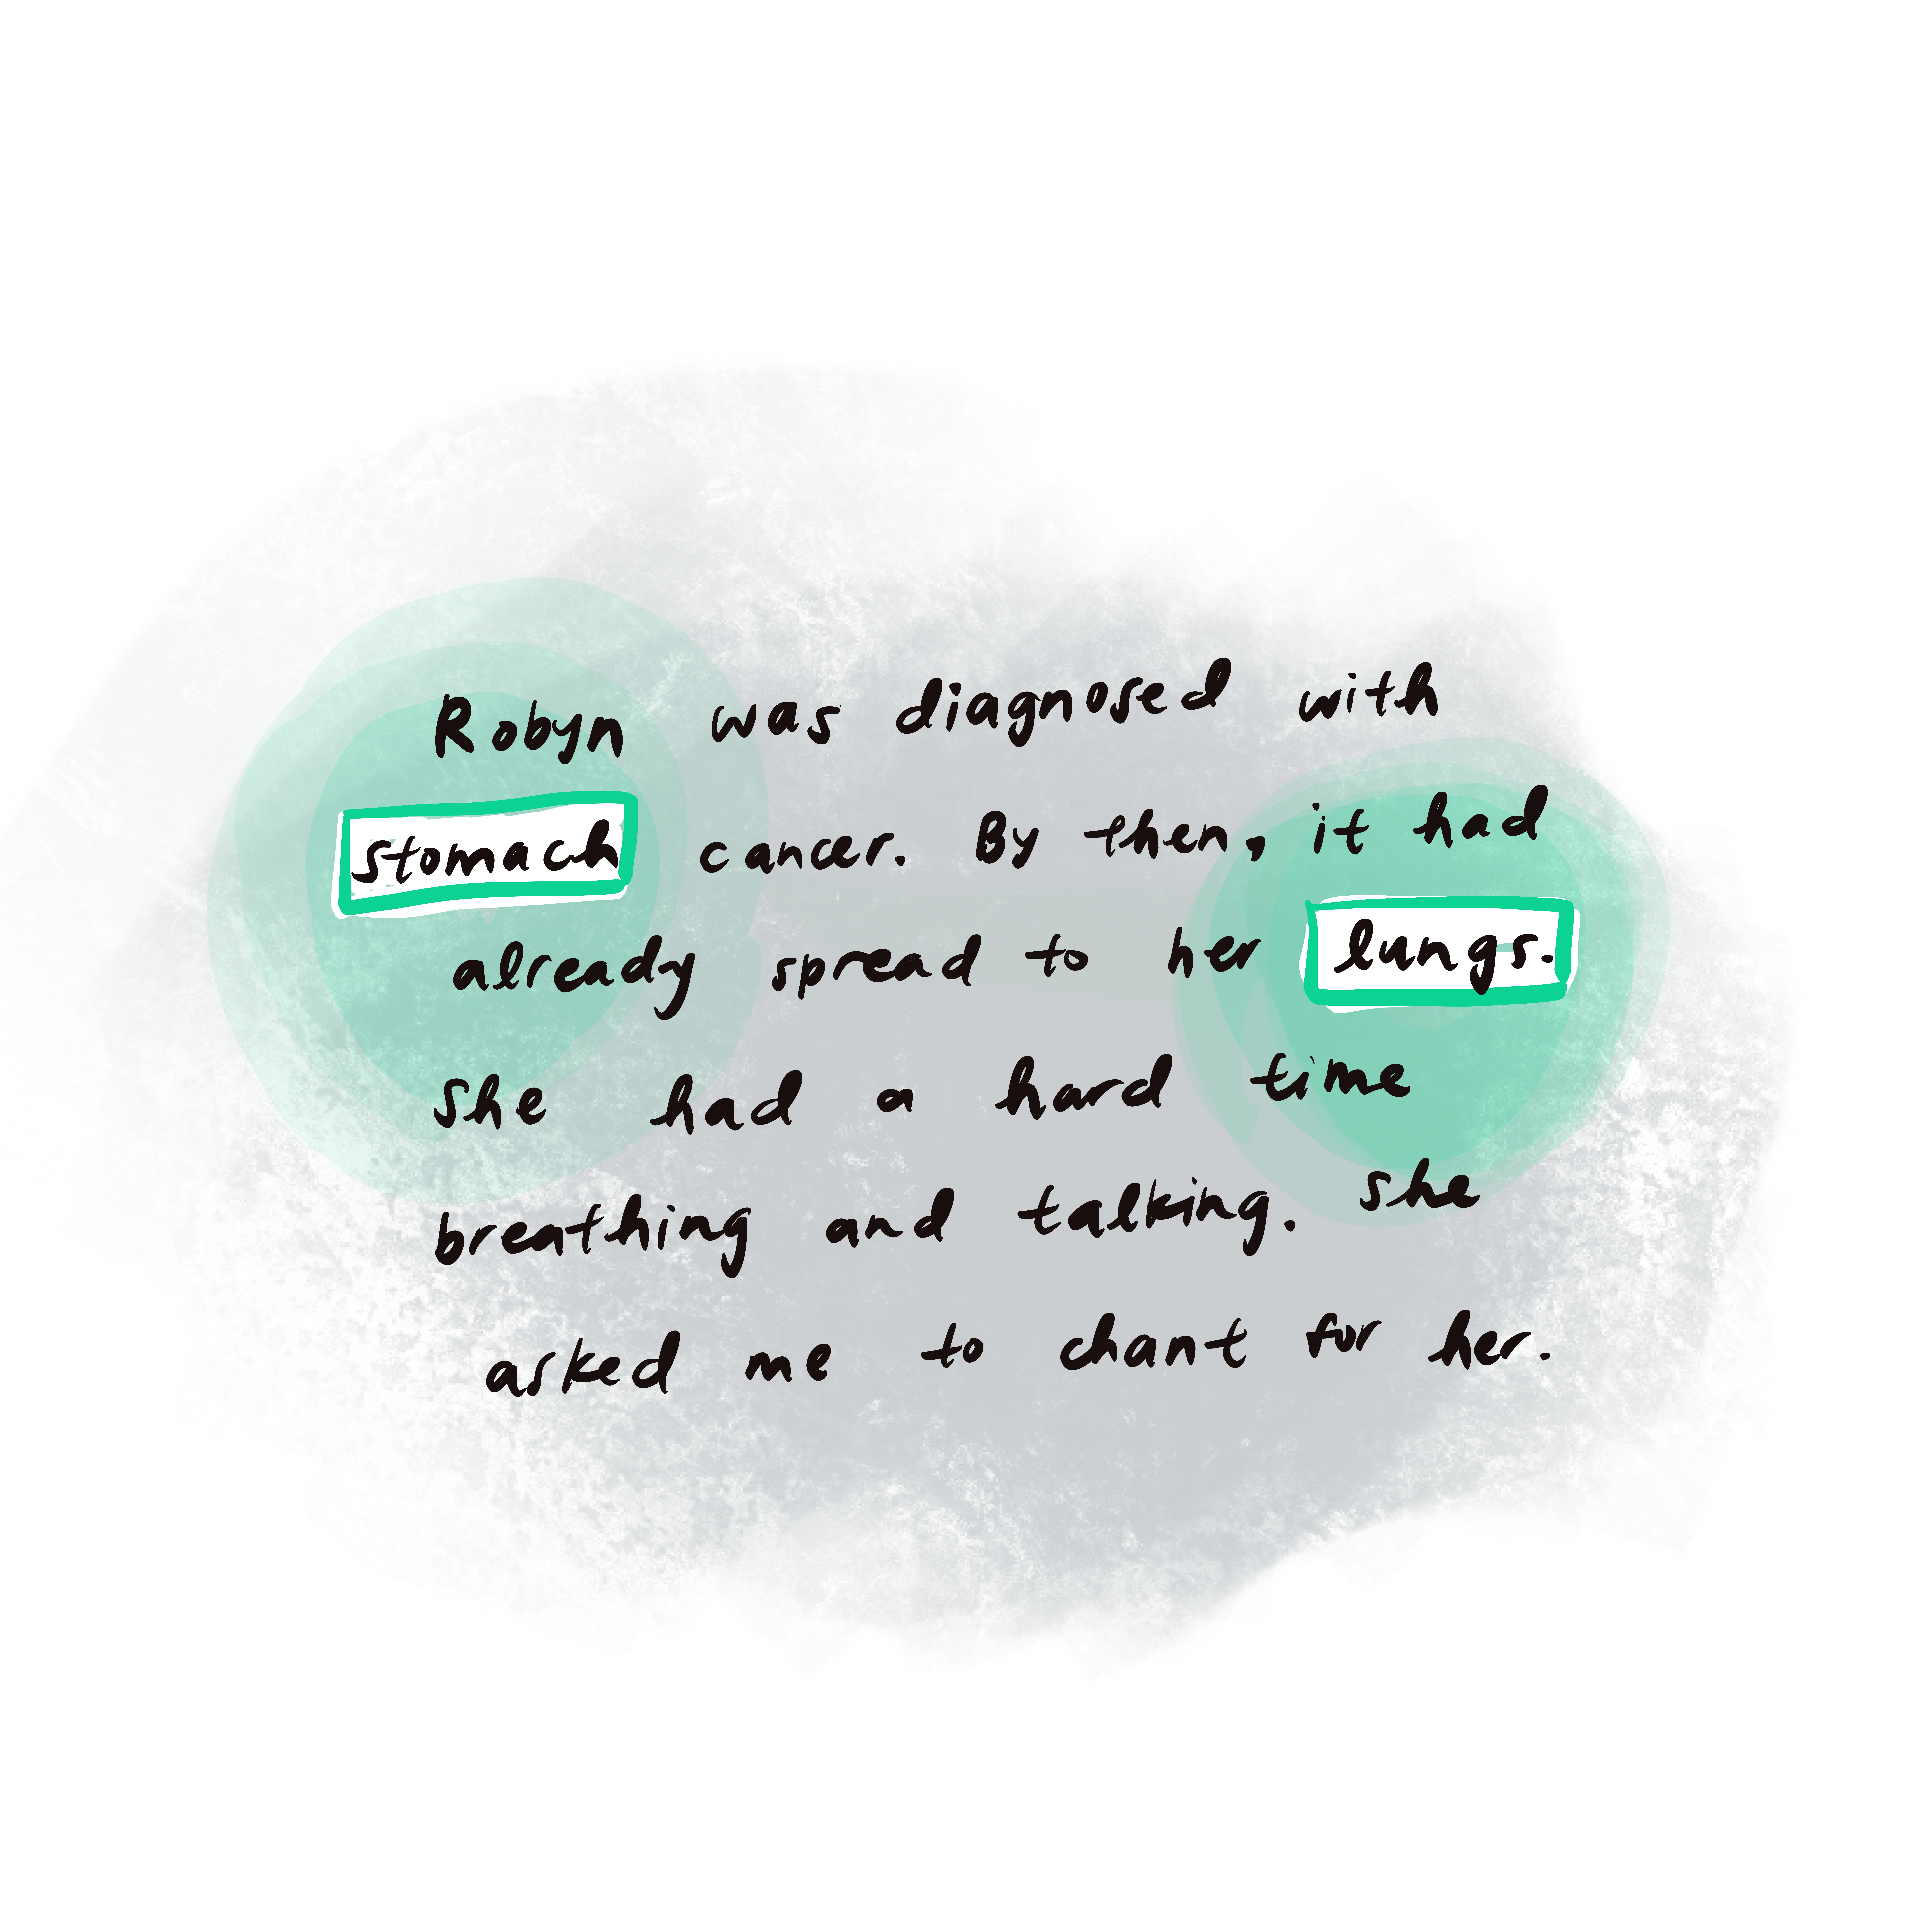 Robyn was diagnosed with
stomach cancer. By then, it had
already spread to her lungs.
She had a hard time
breathing and talking. She
asked me to chant for her.